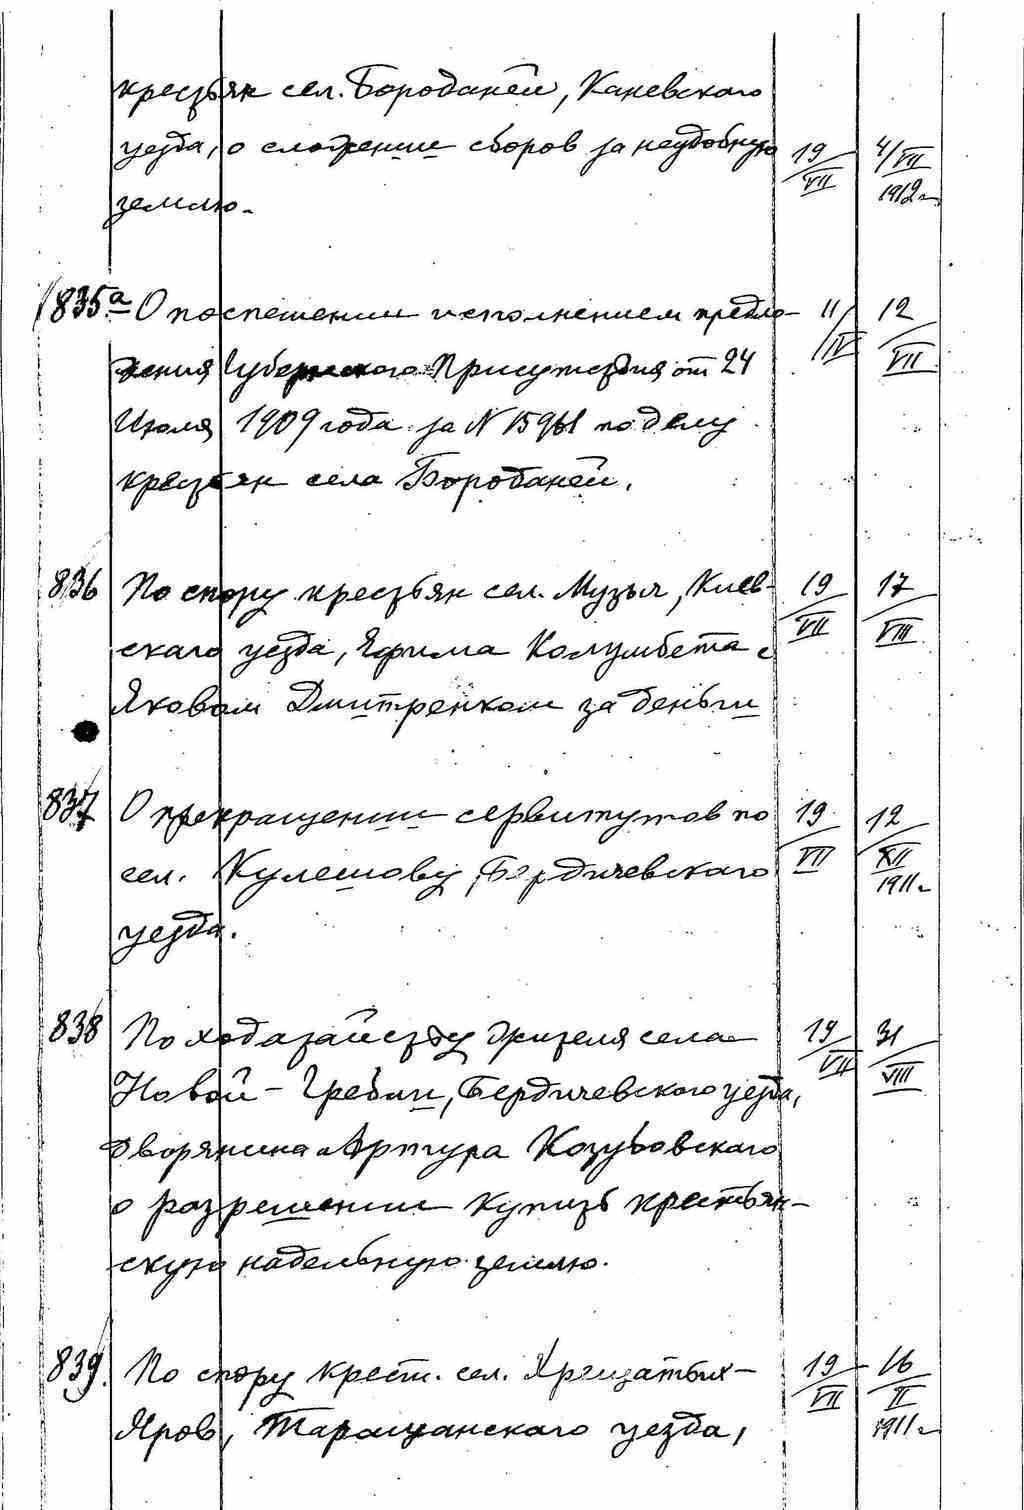 крестьян сел. Бороданей, Каневского
уезда, о сложении сборов за неудобную 19/VII 4/VII
землю. 1912 г
835а О поспешении исполнением предло- 11/IV 12/VII
жения Губернского Присутствия от 24
Июля 1909 года за N 15961 по делу
крестьян села Бороданей.
836 По спору крестьян сел. Музыч, Киев- 19/VII 17/VIII
скаго уезда, Ефима Колумбета с
Яковом Дмитренком за деньги
837 О прекращении сервитутов по 19/VII 12/XII
сел. Кулешову, Бердичевского 1911 г
уезда.
838 По ходатайству жителя села 19/VII 31/VIII
Новой-Гребли, Бердичевского уезда,
дворянина Артура Козубовского
о разрешении купить крестьян-
скую надельную землю.
839. По спору крест. сел. Хрещатых- 19/VII 16/II
Яров, Таращанскаго уезда, 1911 г